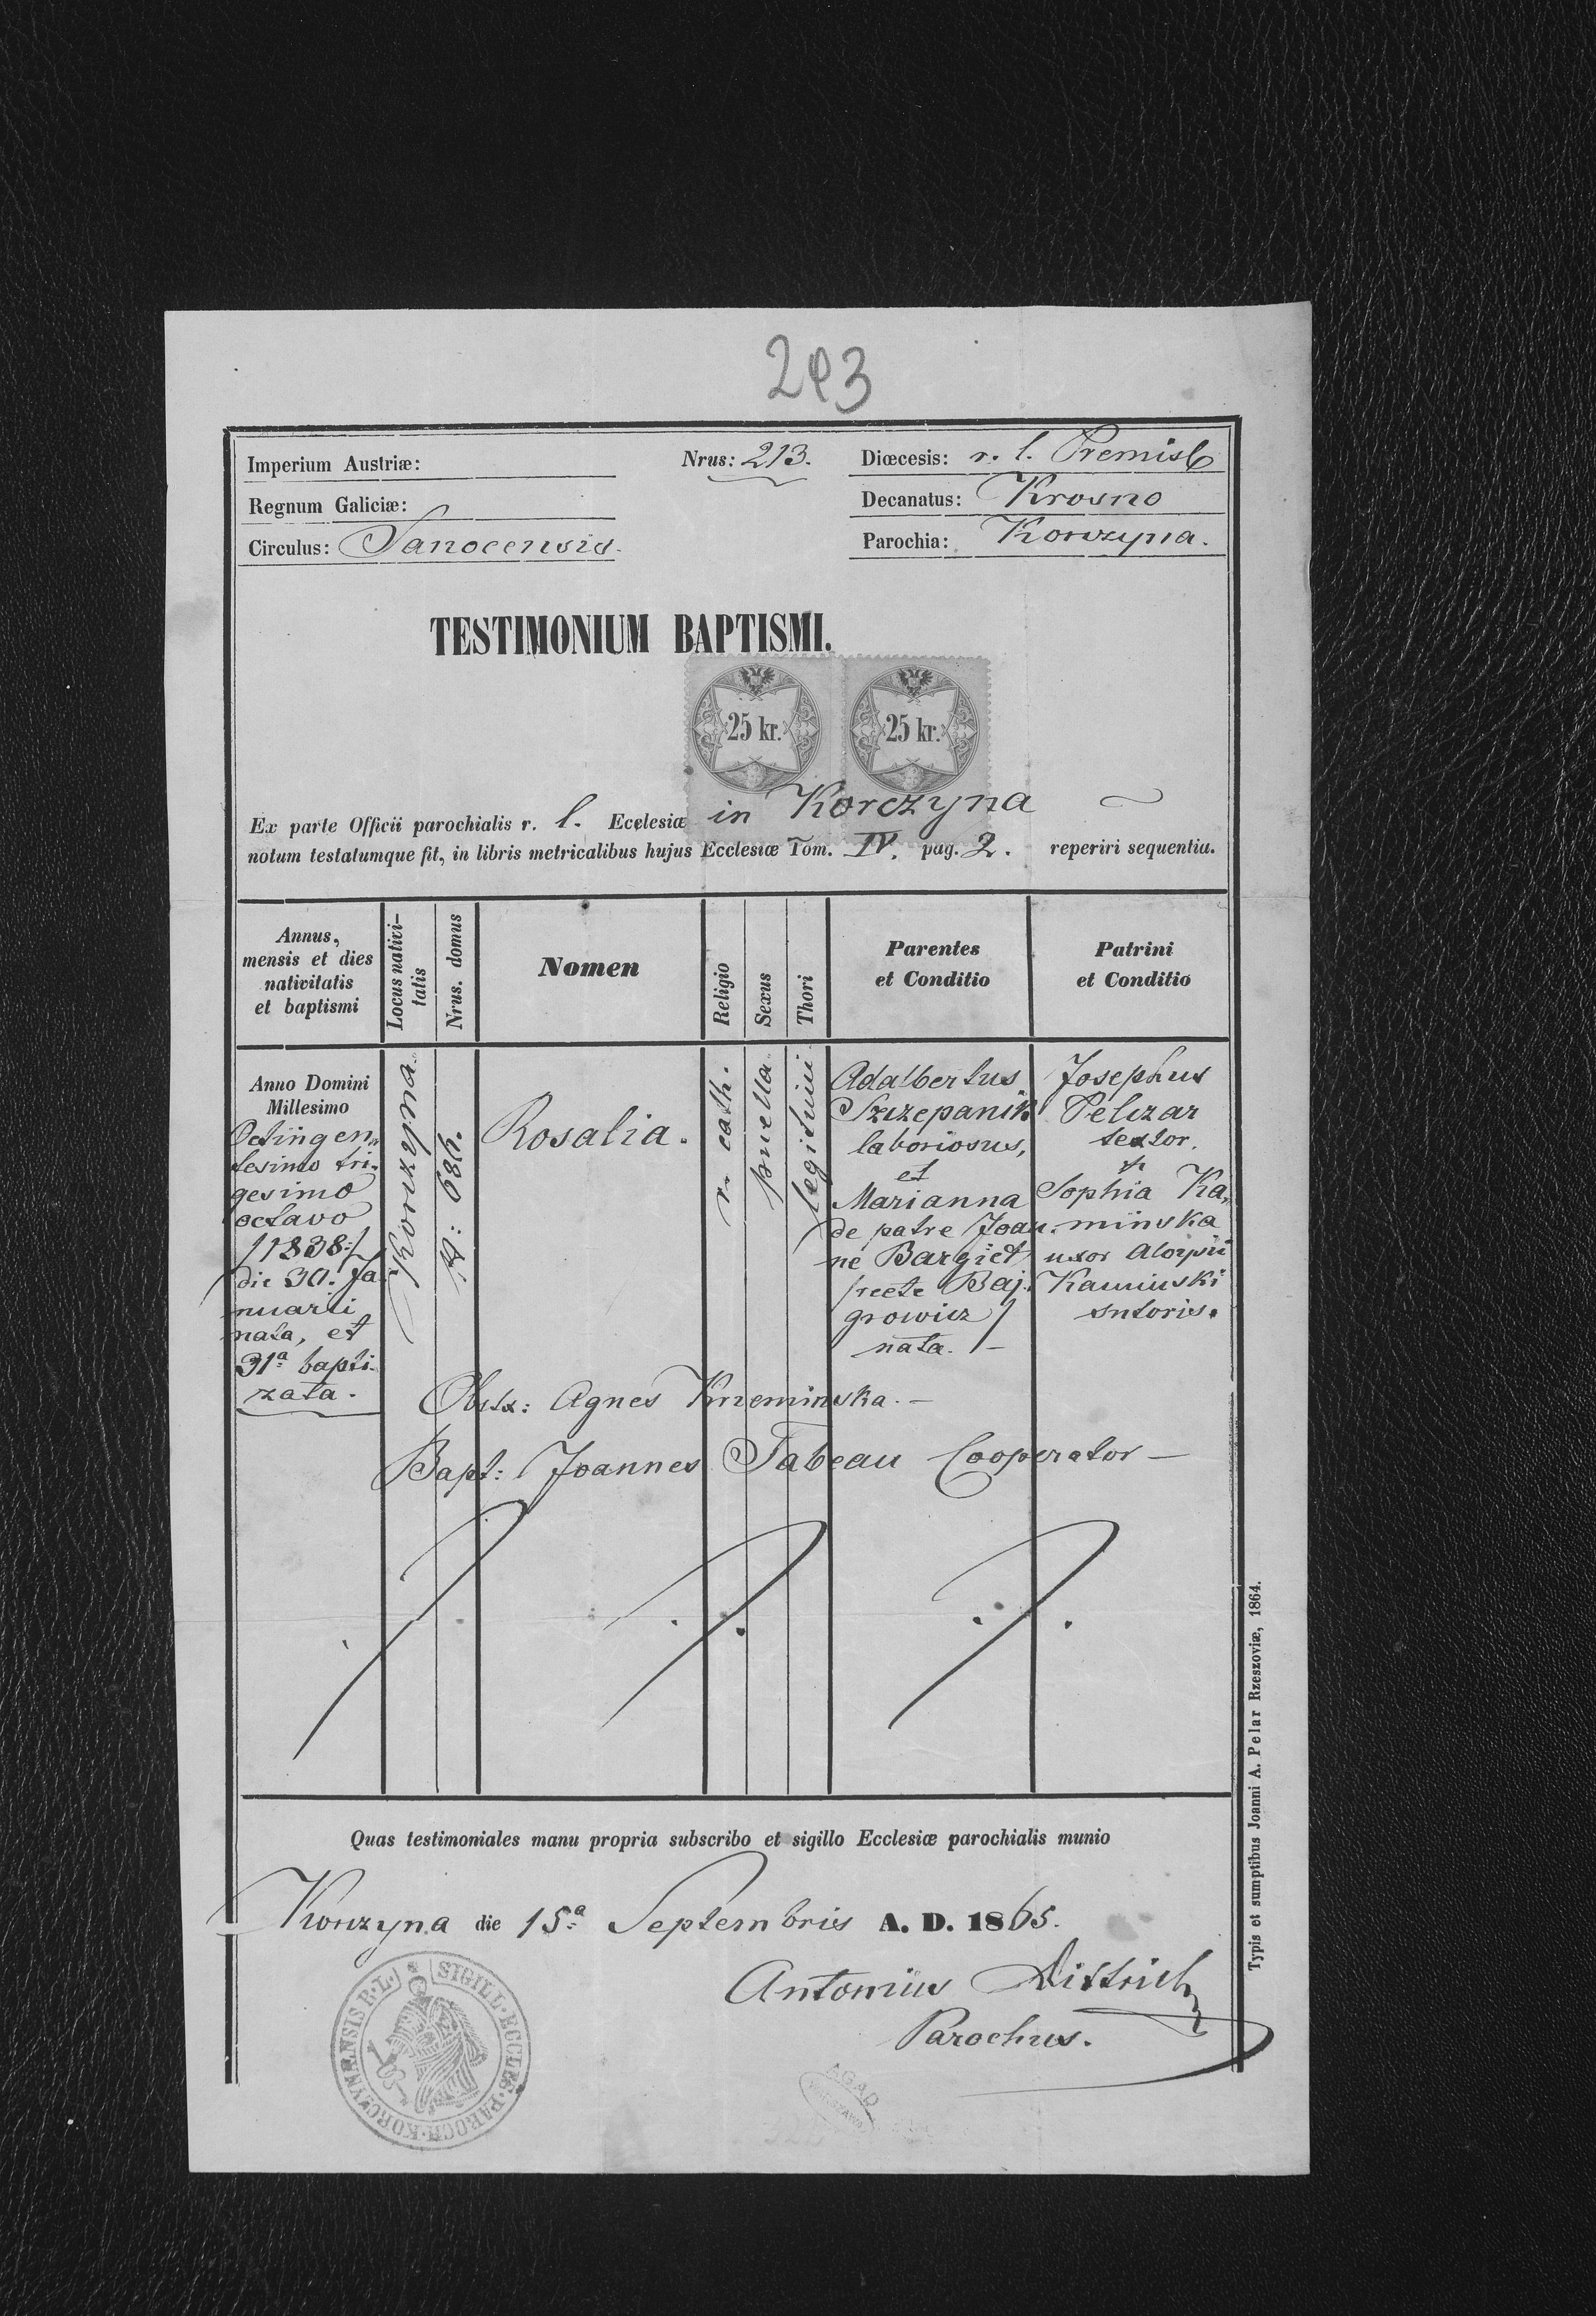 293
Imperium Austriæ:
Nrus: 213.
Diœcesis: r. l. Premisl
Regnum Galiciæ:
Decanatus: Krosno
Circulus: Sanocensis.
Parochia: Korczyna.
TESTIMONIUM BAPTISMI.
25 kr. 25 kr.
Ex parte Officii parochialis r. l. Ecclesiæ in Korczyna
notum testatumque fit, in libris metricalibus hujus Ecclesiæ Tom. IV. pag. 2. reperiri sequentia.
Annus,
mensis et dies
nativitatis
et baptismi
Locus nativi-
tatis
Nrus. domus
Nomen
Religio
Sexus
Thori
Parentes
et Conditio
Patrini
et Conditio
Anno Domini
Millesimo
Octingen„
tesimo tri„
gesimo
octavo
/1838:/
die 30. Ja„
nuarii
nata, et
31ª bapti„
zata.
Korczyna.
N: 689.
Rosalia.
r. cath.
puella.
legitimi
Adalbertus
Szczepanik
laboriosus,
et
Marianna
de patre Joan„
ne Bargiet
/recte Baj„
growicz/
nata. –
Josephus
Pelczar
textor.
et
Sophia Ka„
minska
uxor Aloysii
Kaminski
sutoris.
Obstx: Agnes Krzeminska. –
Bapt: Joannes Tabeau Cooperator –
Quas testimoniales manu propria subscribo et sigillo Ecclesiæ parochialis munio
Korczyna die 15ª Septembris A. D. 1865.
Antonius Dittrich
Parochus.
SIGILL. ECCLES. PAROCH. KORCZYNENSIS R. L.
AGAD
WARSZAWA
Typis et sumptibus Joanni A. Pelar Rzeszoviæ, 1864.